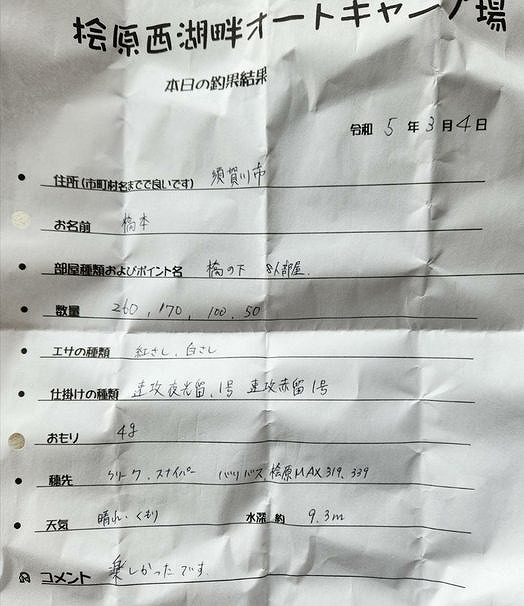 桧原西湖畔オートキャンプ場
本日の釣果結果
令和 5 年 3 月 4 日
住所(市町村名までで良いです) 須賀川市
お名前 橋本
部屋種類およびポイント名 橋の下 8人部屋
数量 260, 170, 100, 50
エサの種類 紅さし、白さし
仕掛けの種類 速攻夜光留、1号 速攻赤留1号
おもり 4g
穂先 クリーク、スナイパー バリバス 桧原MAX 319、339
天気 晴れ・くもり 水深 約 9.3m
コメント 楽しかったです。